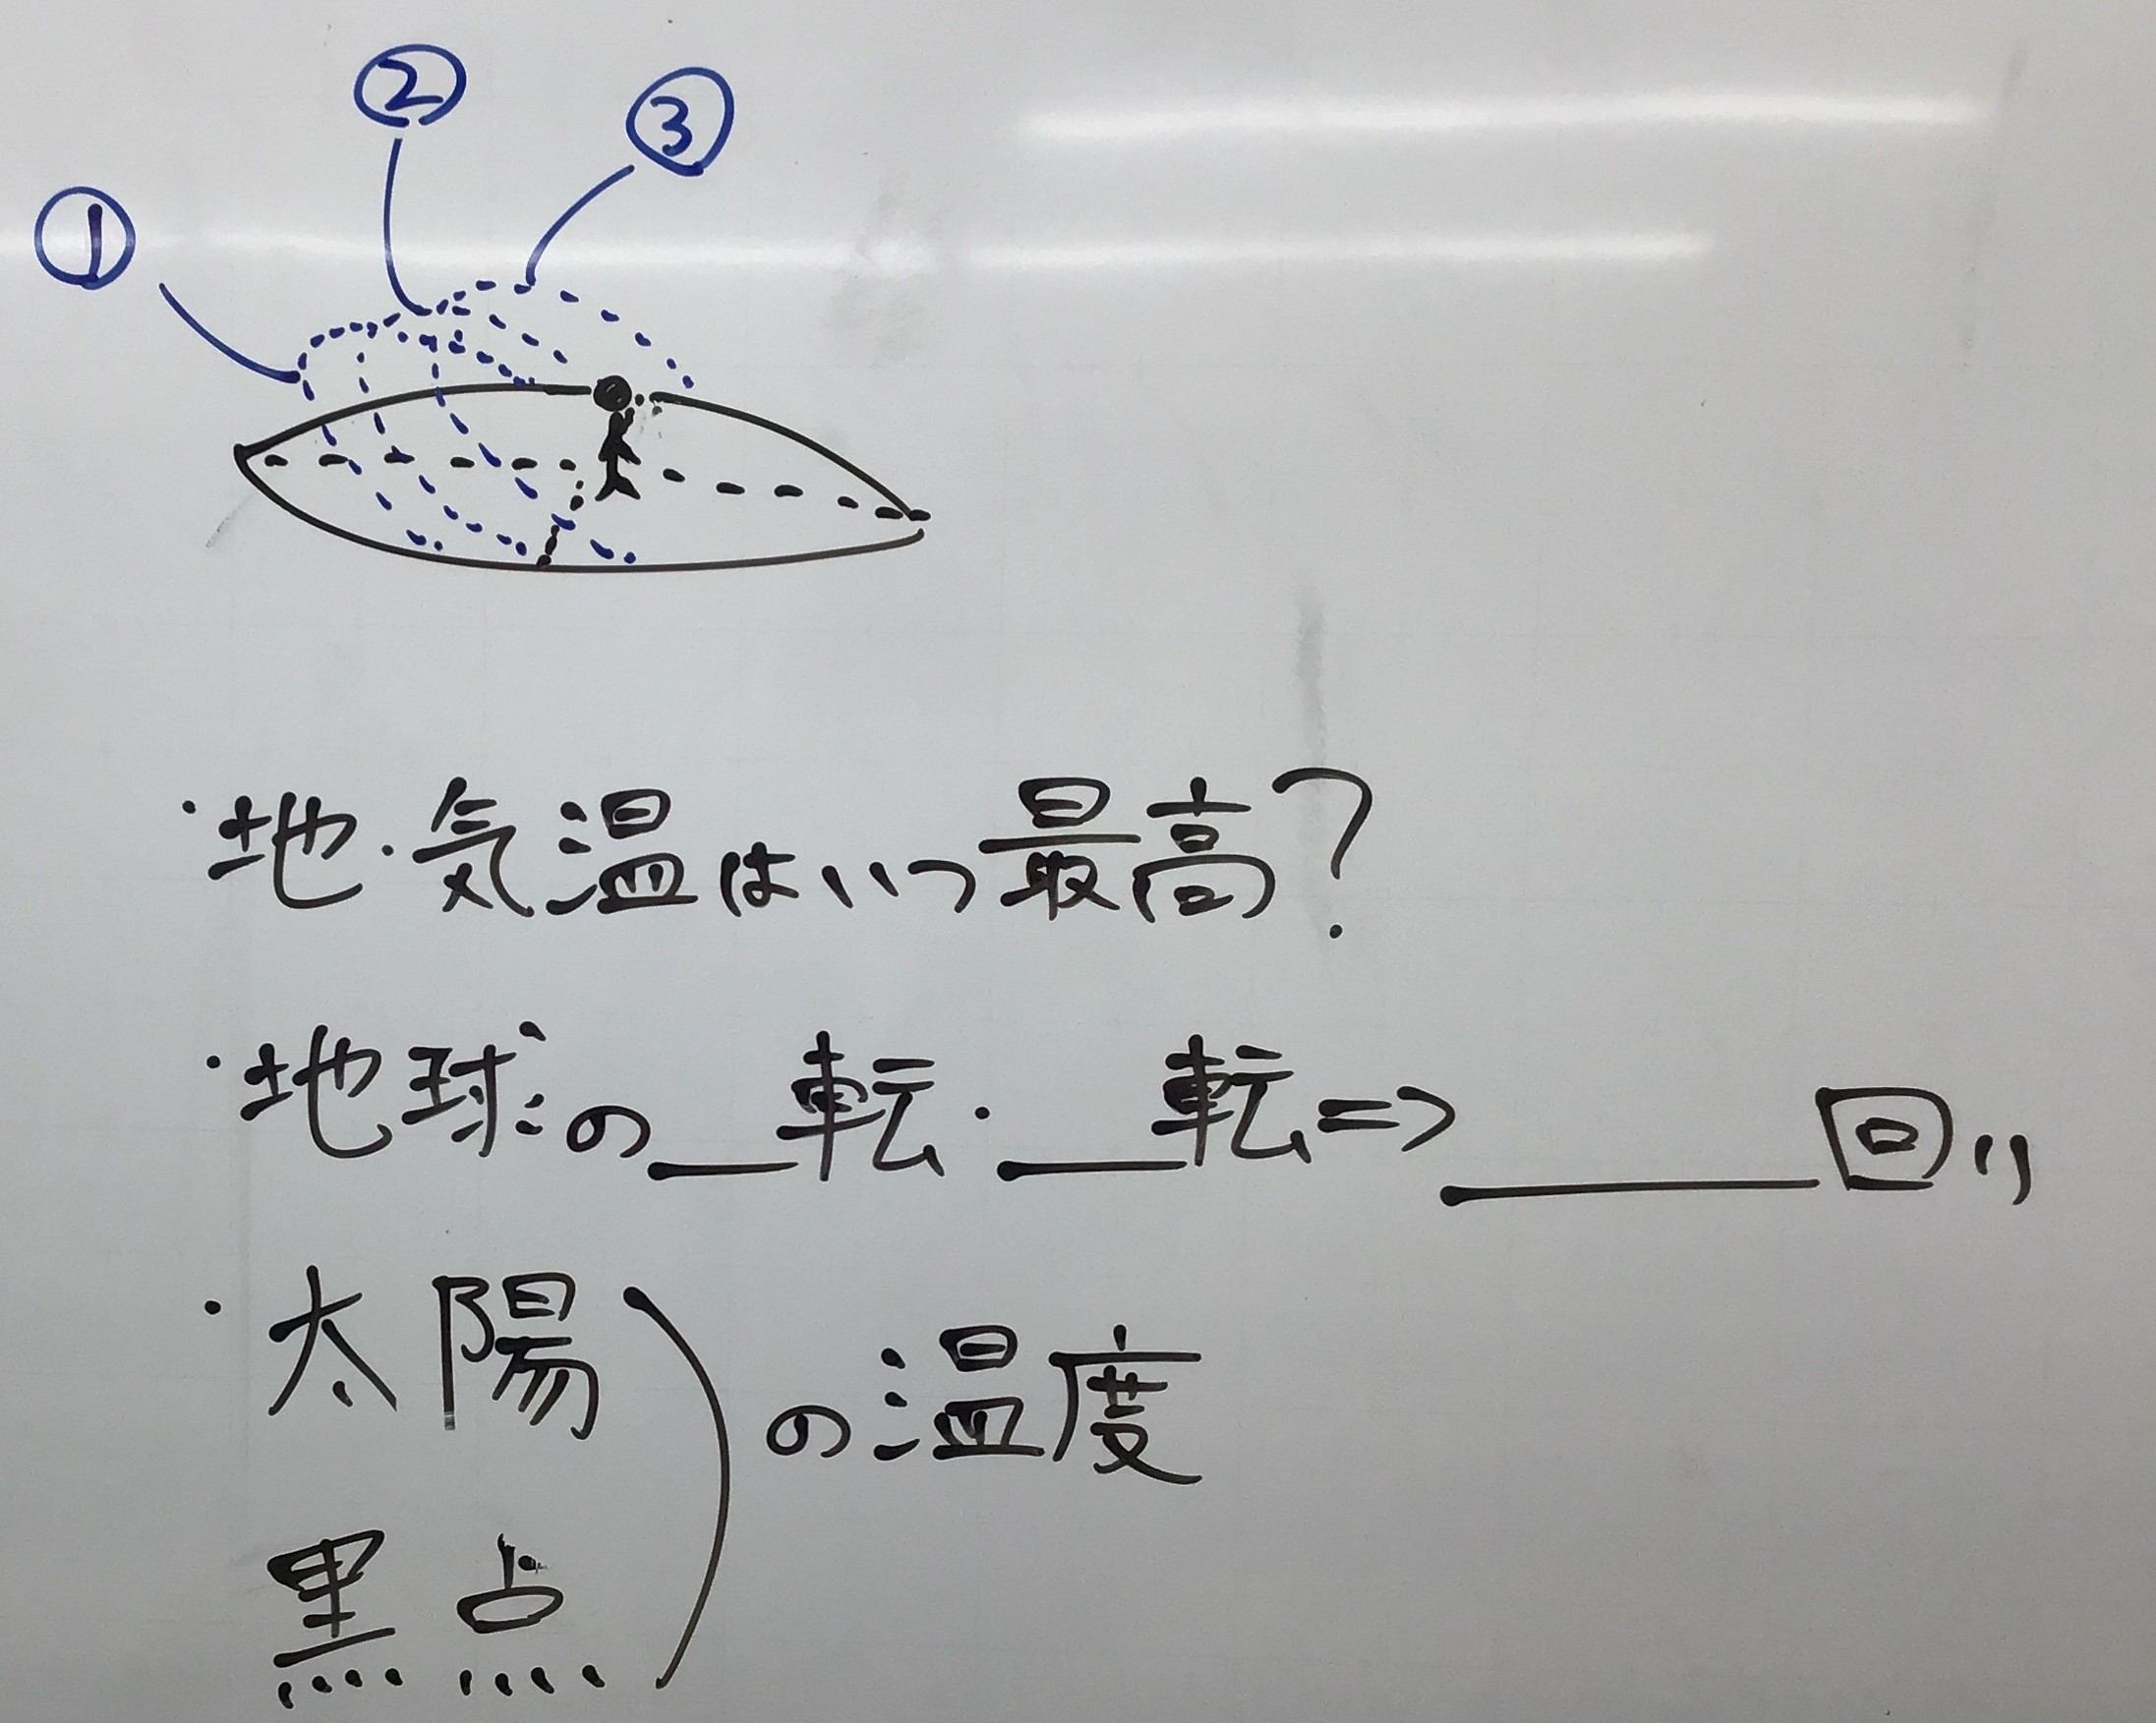 ②
③
①
・地・気温はいつ最高?
・地球の__転・__転=>____回り
・太陽
の温度
黒点